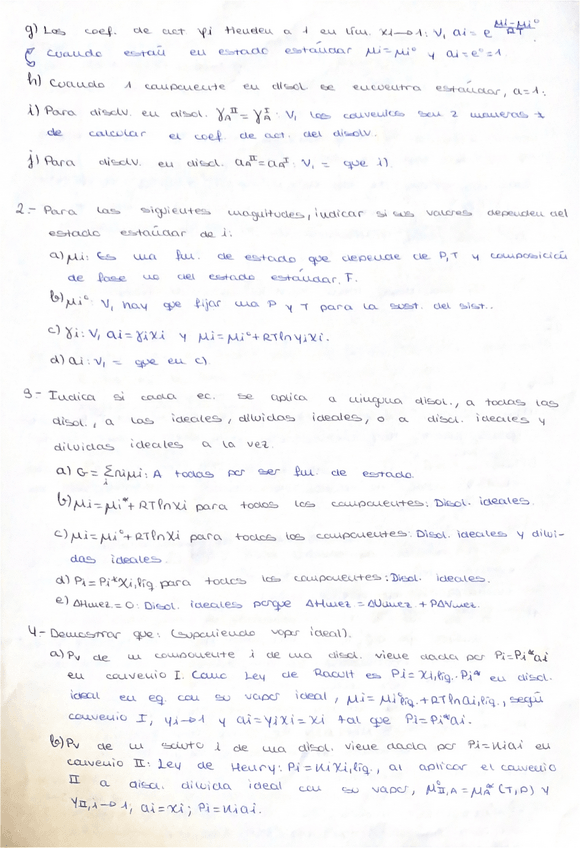 g) Los coef. de act γi tienden a 1 en lím. xi→1: V, ai = e^(μi-μi°/RT).
Cuando están en estado estándar μi=μi° y ai=e°=1.
h) Cuando 1 componente en disol se encuentra estándar, a=1.
i) Para disolv. en disol. γA^II = γA^I: V, los convenios son 2 maneras
de calcular el coef. de act. del disolv.
j) Para disolv. en disol. aA^II = aA^I: V, = que i).
2.- Para las siguientes magnitudes, indicar si sus valores dependen del
estado estándar de i:
a) μi: Es una fun. de estado que depende de P, T y composición
de fase no del estado estándar, F.
b) μi°: V, hay que fijar una P y T para la sust. del sist..
c) γi: V, ai=γixi y μi=μi°+RTlnγixi.
d) ai: V, = que en c).
3- Indica si cada ec. se aplica a ninguna disol., a todas las
disol., a las ideales, diluidas ideales, o a disol. ideales y
diluidas ideales a la vez.
a) G = Σniμi: A todas por ser fun. de estado.
b) μi=μi*+RTlnxi para todos los componentes: Disol. ideales.
c) μi=μi°+RTlnxi para todos los componentes: Disol. ideales y dilui-
das ideales.
d) Pi=Pi*xi,liq para todos los componentes: Disol. ideales.
e) ΔHmez=0: Disol. ideales porque ΔHmez=ΔUmez+PΔVmez.
4- Demostrar que: (suponiendo vapor ideal).
a) Pv de un componente i de una disol. viene dada por Pi=Pi*ai
en convenio I. Como Ley de Raoult es Pi=xi,liq.Pi* en disol.
ideal en eq. con su vapor ideal, μi=μi°liq.+RTlnai,liq., según
convenio I, γi→1 y ai=γixi=xi tal que Pi=Pi*ai.
b) Pv de un soluto i de una disol. viene dada por Pi=kiai en
convenio II: Ley de Henry: Pi=kixi,liq., al aplicar el convenio
II a disol. diluida ideal con su vapor, μ°II,A=μA*(T,P) y
γII,i→1, ai=xi; Pi=kiai.